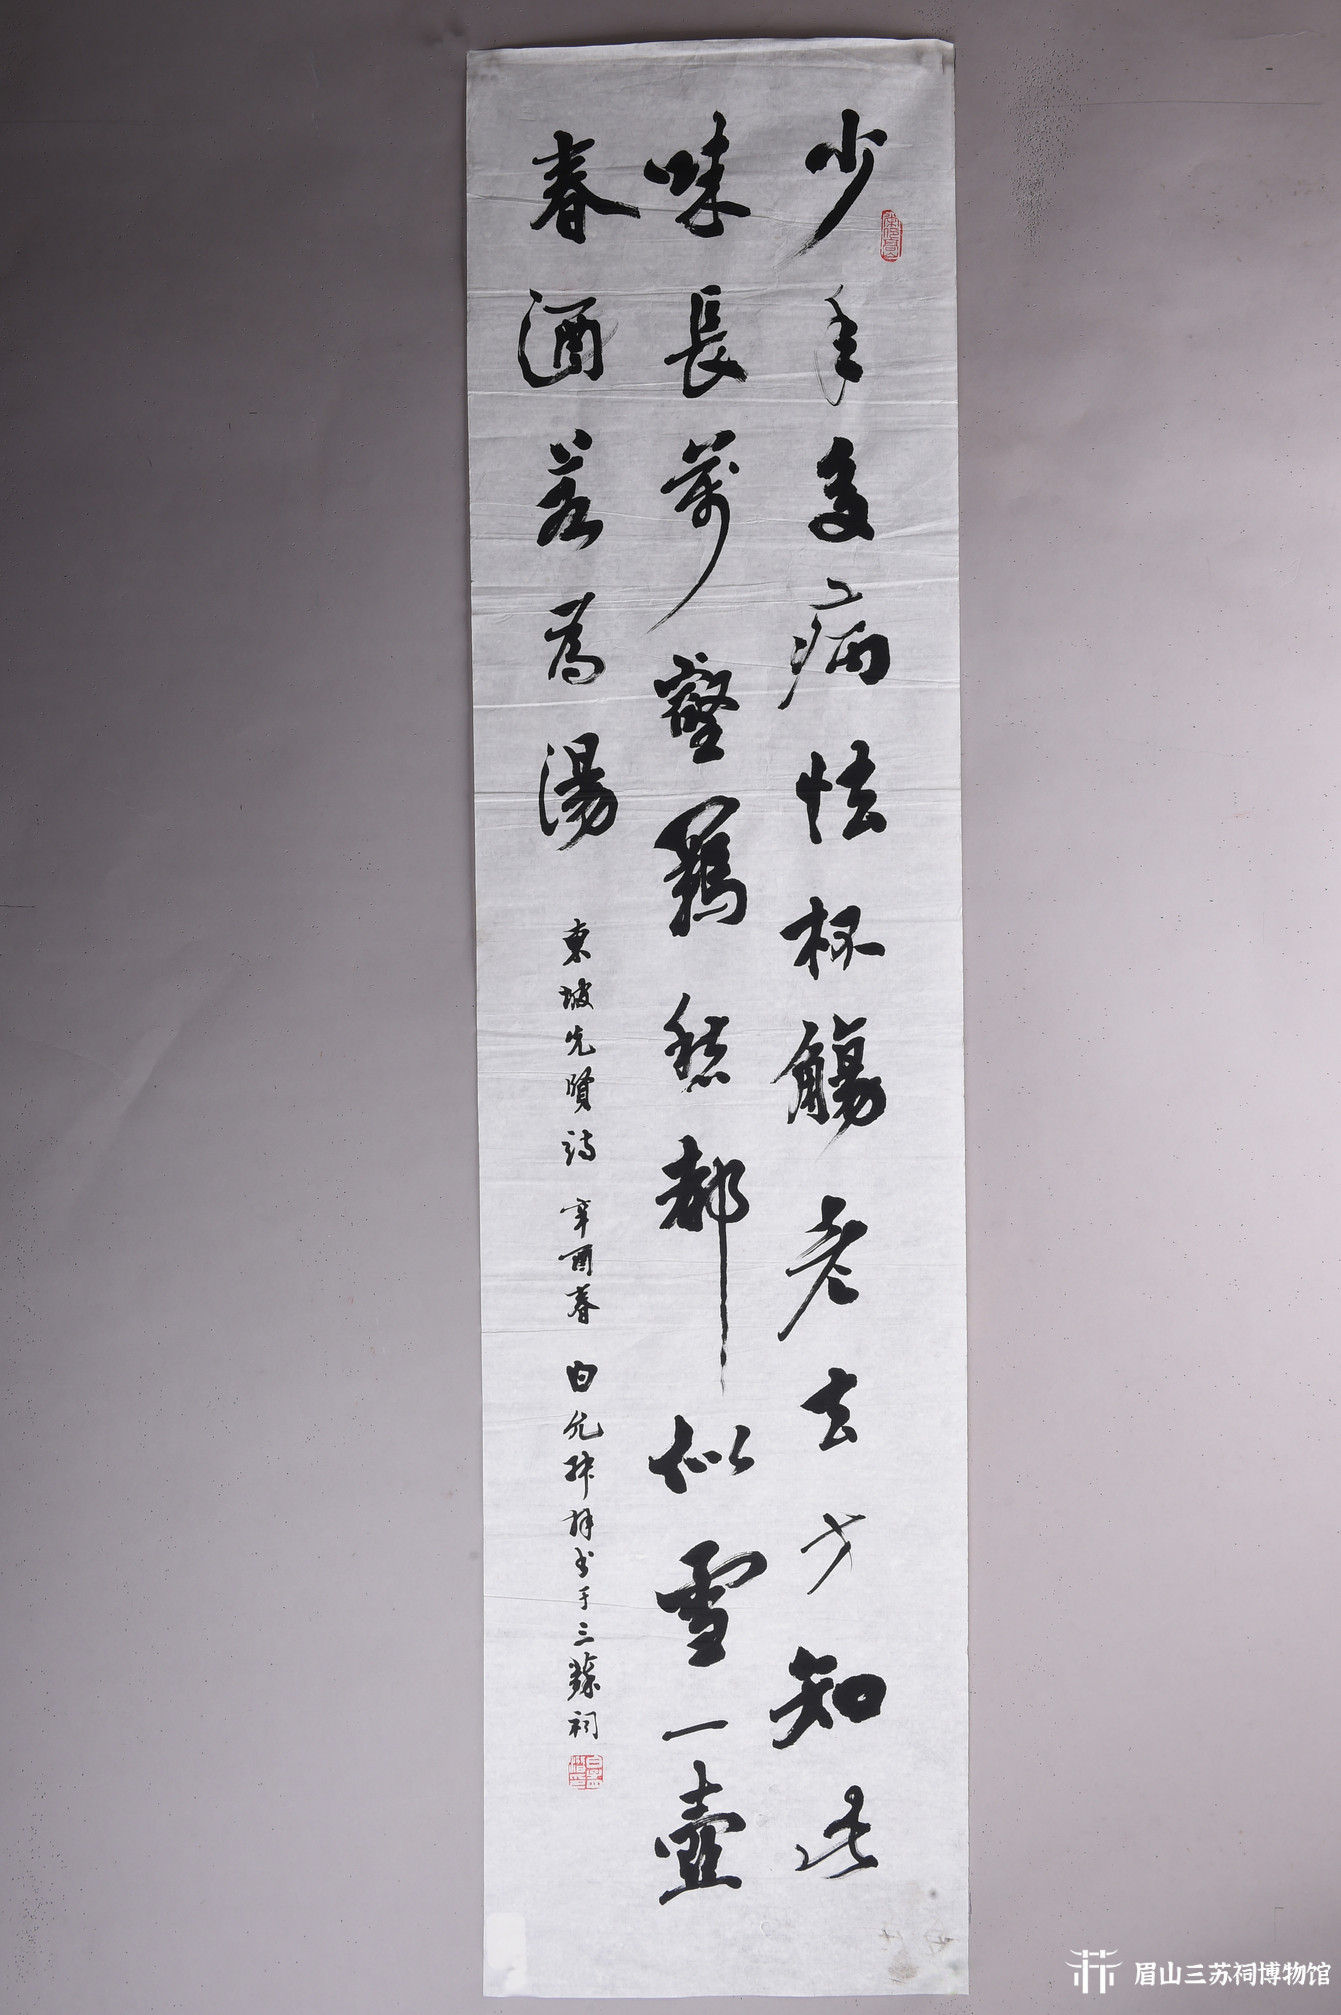 少年多病怯杯觴老去方知此
味長萬壑羈愁都似雪一壺
春酒若為湯
東坡先賢詩 辛酉春 白允叔拜书于三蘇祠
眉山三苏祠博物馆